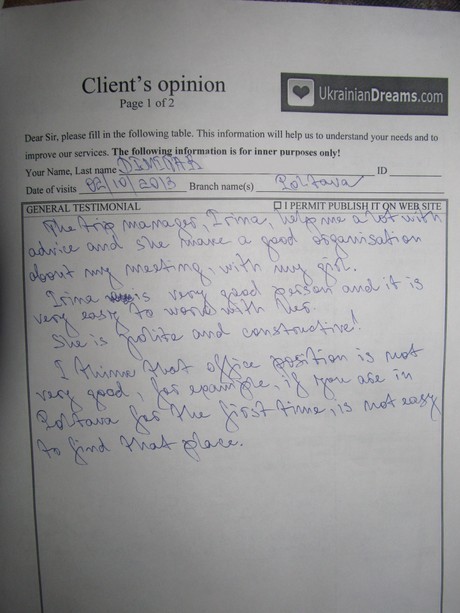 Client's opinion
Page 1 of 2
UkrainianDreams.com
Dear Sir, please fill in the following table. This information will help us to understand your needs and to
improve our services. The following information is for inner purposes only!
Your Name, Last name ID
Date of visits 02/10/2013 Branch name(s) Poltava
GENERAL TESTIMONIAL ☐ I PERMIT PUBLISH IT ON WEB SITE
The trip manager, Irina, help me a lot with
advice and she make a good organisation
about my meeting, with my girl.
Irina is very good person and it is
very easy to work with her.
She is polite and constructive!
I think that office position is not
very good, for example, if you are in
Poltava for the first time, is not easy
to find that place.